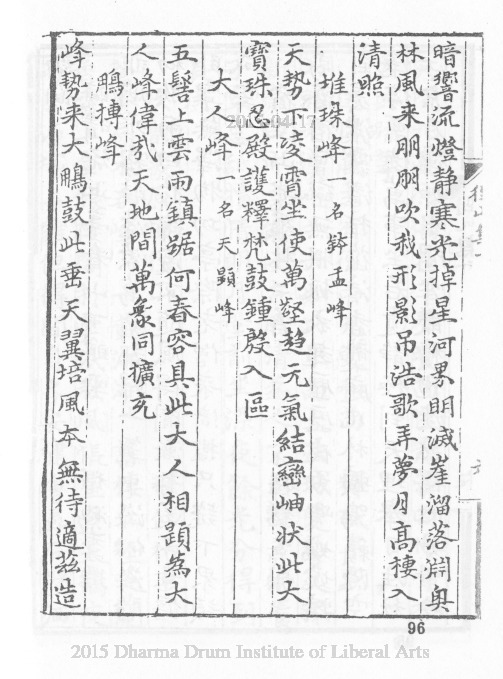 暗響流燈静寒光掉星河界明滅崖溜落淵奥
林風来朋朋吹我形影吊浩歌弄夢月高棲入
清照
堆珠峰一名鉢盂峰
天勢下凌霄坐使萬壑趋元氣結巒岫状此大
寶珠忍殿護釋梵鼓鍾殷入區
大人峰一名天顕峰
五髻上雲雨鎮踞何春容具此大人相顕為大
人峰偉哉天地間萬象同擴充
鵰搏峰
峰勢来大鵰鼓此垂天翼培風本無待適茲造
96
2015 Dharma Drum Institute of Liberal Arts